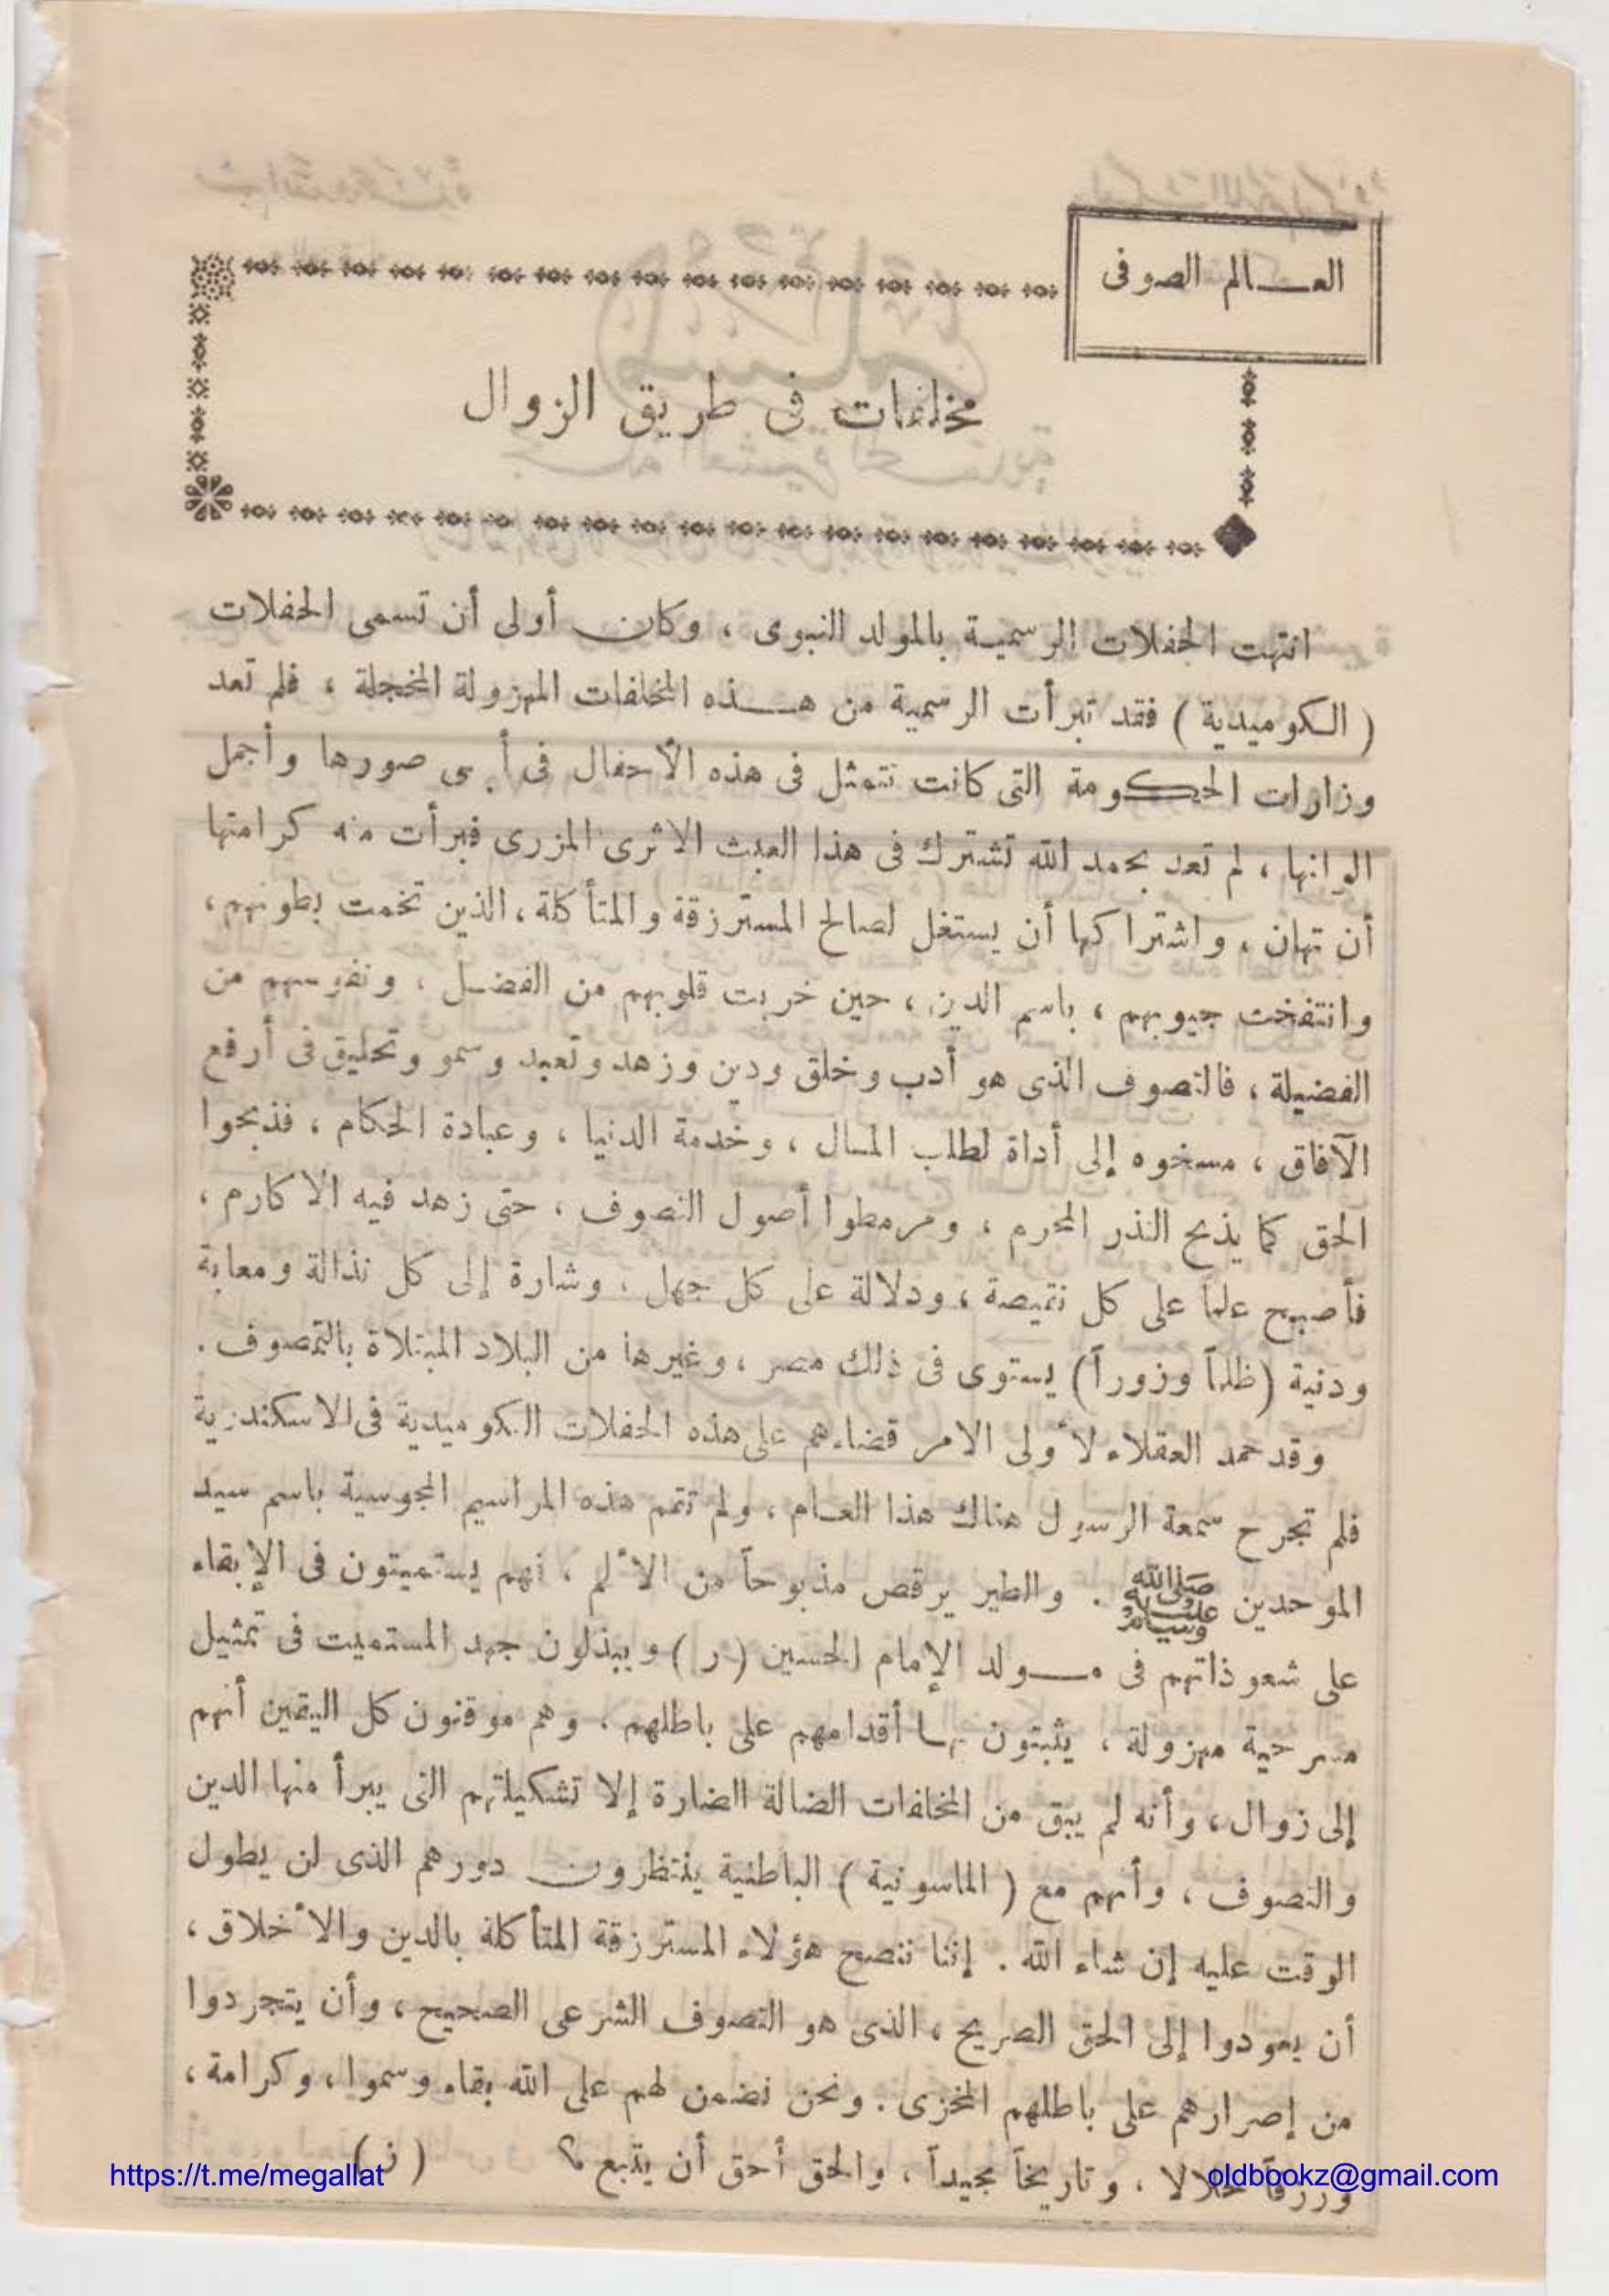 العـــالم الصوفى
مخلفات فى طريق الزوال
انتهت الحفلات الرسمية بالمولد النبوى ، وكان أولى أن تسمى الحفلات
( الكوميدية ) فقد تبرأت الرسمية من هـــذه المخلفات المهزولة المخجلة ، فلم تعد
وزارات الحكومة التى كانت تتمثل فى هذه الأحفال فى صورها وأجمل
الوانها ، لم تعد بحمد الله تشترك فى هذا العبث الاثرى المزرى فبرأت منه كرامتها
أن تهان ، واشتراكها أن يستغل لصالح المسترزقة والمتأكلة ، الذين تخمت بطونهم ،
وانتفخت جيوبهم ، باسم الدين ، حين خربت قلوبهم من الفضـل ، ونفوسهم من
الفضيلة ، فالتصوف الذى هو أدب وخلق ودين وزهد وتعبد وسمو وتحليق فى أرفع
الآفاق ، مسخوه إلى أداة لطلب المـال ، وخدمة الدنيا ، وعبادة الحكام ، فذبحوا
الحق كما يذبح النذر المحرم ، ومرمطوا أصول التصوف ، حتى زهد فيه الاكارم ،
فأصبح علماً على كل نقيصة ، ودلالة على كل جهل ، وشارة إلى كل نذالة ومعابة
ودنية (ظلماً وزوراً) يستوى فى ذلك مصر ، وغيرها من البلاد المبتلاة بالتمصوف .
وقد حمد العقلاء لأولى الامر قضاءهم على هذه الحفلات الكوميدية فى الاسكندرية
فلم تجرح سمعة الرسول هناك هذا العـام ، ولم تتم هذه المراسيم المجوسية باسم سيد
الموحدين صلى الله عليه وسلم . والطير يرقص مذبوحاً من الألم ، فهم يستميتون فى الإبقاء
على شعوذاتهم فى مـــولد الإمام الحسين (ر) ويبذلون جهد المستميت فى تمثيل
مسرحية مهزولة ، يثبتون بهـا أقدامهم على باطلهم ، وهم موقنون كل اليقين أنهم
إلى زوال ، وأنه لم يبق من المخلفات الضالة الضارة إلا تشكيلاتهم التى يبرأ منها الدين
والتصوف ، وأنهم مع ( الماسونية ) الباطنية ينتظرون دورهم الذى لن يطول
الوقت عليه إن شاء الله . إننا ننصح هؤلاء المسترزقة المتأكلة بالدين والأخلاق ،
أن يعودوا إلى الحق الصريح ، الذى هو التصوف الشرعى الصحيح ، وأن يتجردوا
من إصرارهم على باطلهم المخزى . ونحن نضمن لهم على الله بقاء وسموا ، وكرامة ،
ورزقاً حلالا ، وتاريخاً مجيداً ، والحق أحق أن يتبع ؟ ( ز )
https://t.me/megallat
oldbookz@gmail.com